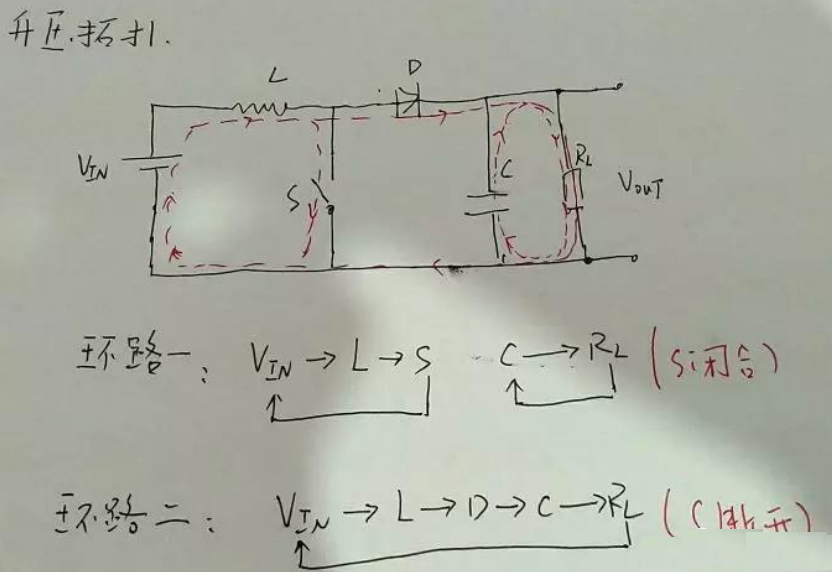 升压拓扑.
L
D
V_IN
S
C
R_L
V_OUT
环路一: V_IN → L → S C → R_L (S闭合)
环路二: V_IN → L → D → C → R_L (C断开)